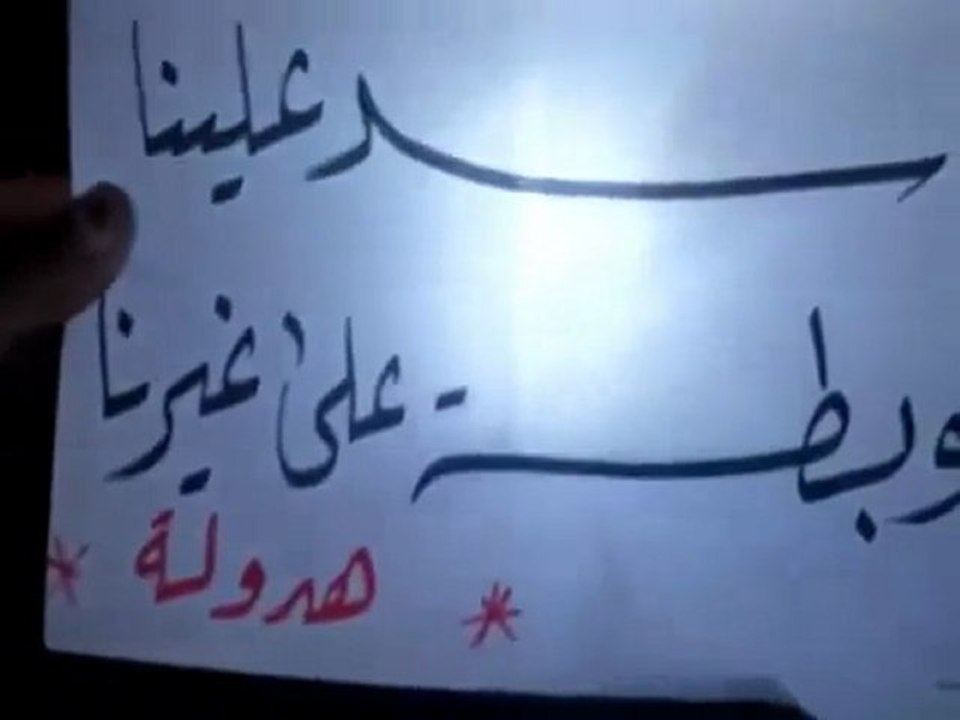 ســـد علينا
وبطـــة على غيرنا
* هدولة *